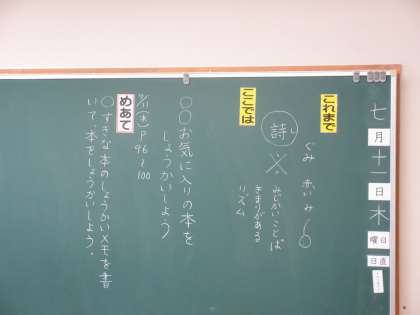 七月十一日木曜日
日直
これまで
ぐみ 赤いみ
ここでは
詩
し
みじかいことば
きまりがある
リズム
○○お気に入りの本を
しょうかいしよう
7/11(木)P96~100
めあて
○すきな本のしょうかいメモを書
いて、本をしょうかいしよう。